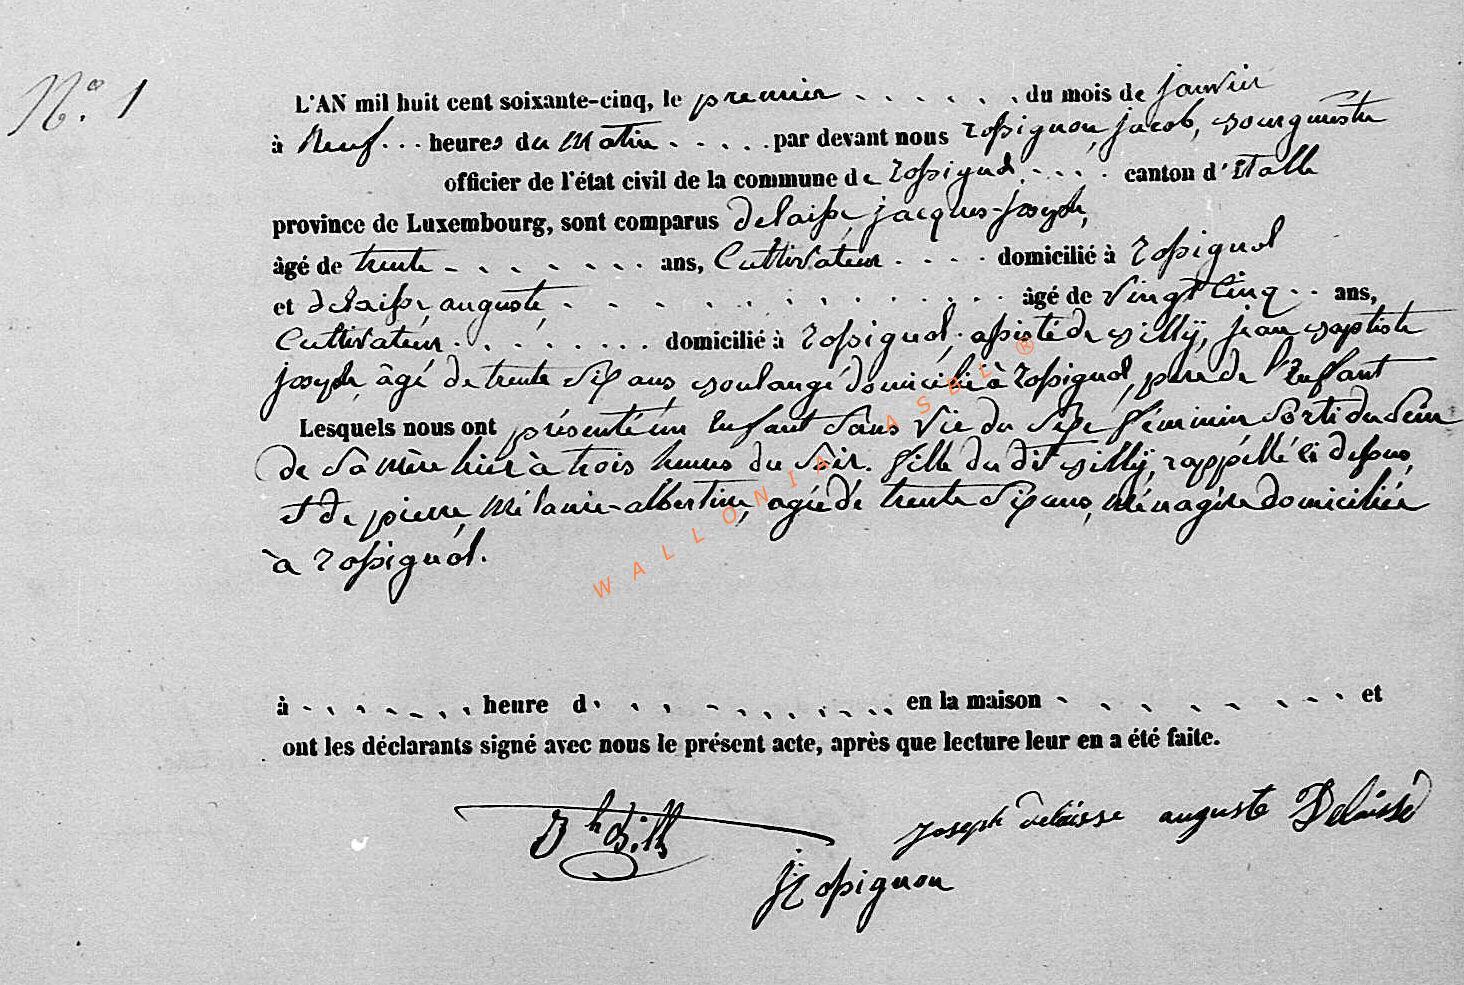 N.° 1
L'AN mil huit cent soixante-cinq, le premier . . . . . . du mois de janvier
à Neuf . . . heures du Matin . . . . . par devant nous rossignon, jacob, bourguestre
officier de l'état civil de la commune de rossignol . . . . canton d'Etalle
province de Luxembourg, sont comparus delaisse, jacques-joseph,
âgé de trente . . . . . . . ans, Cultivateur . . . . domicilié à rossignol
et delaisse, auguste, . . . . . . . . . . . . âgé de Vingt Cinq . . ans,
Cultivateur . . . . . . . . domicilié à rossignol, assisté de billÿ, jean baptiste
joseph, âgé de trente Six ans, boulangé domicilié à rossignol, père de l'Enfant
Lesquels nous ont présenté un Enfant Sans Vie du Sexe féminin Sorti du Sein
de Sa mère hier à trois heures du Soir. fille du dit billÿ, rappéllé ci dessus,
et de pierre, Mélanie-albertine, agée de trente Six ans, ménagère domiciliée
à rossignol.
à . . . . . . . heure d . . . . . . . . . en la maison . . . . . . . et
ont les déclarants signé avec nous le présent acte, après que lecture leur en a été faite.
Joseph delaisse auguste Delaisse
J Rossignon
WALLONIA ASBL ®